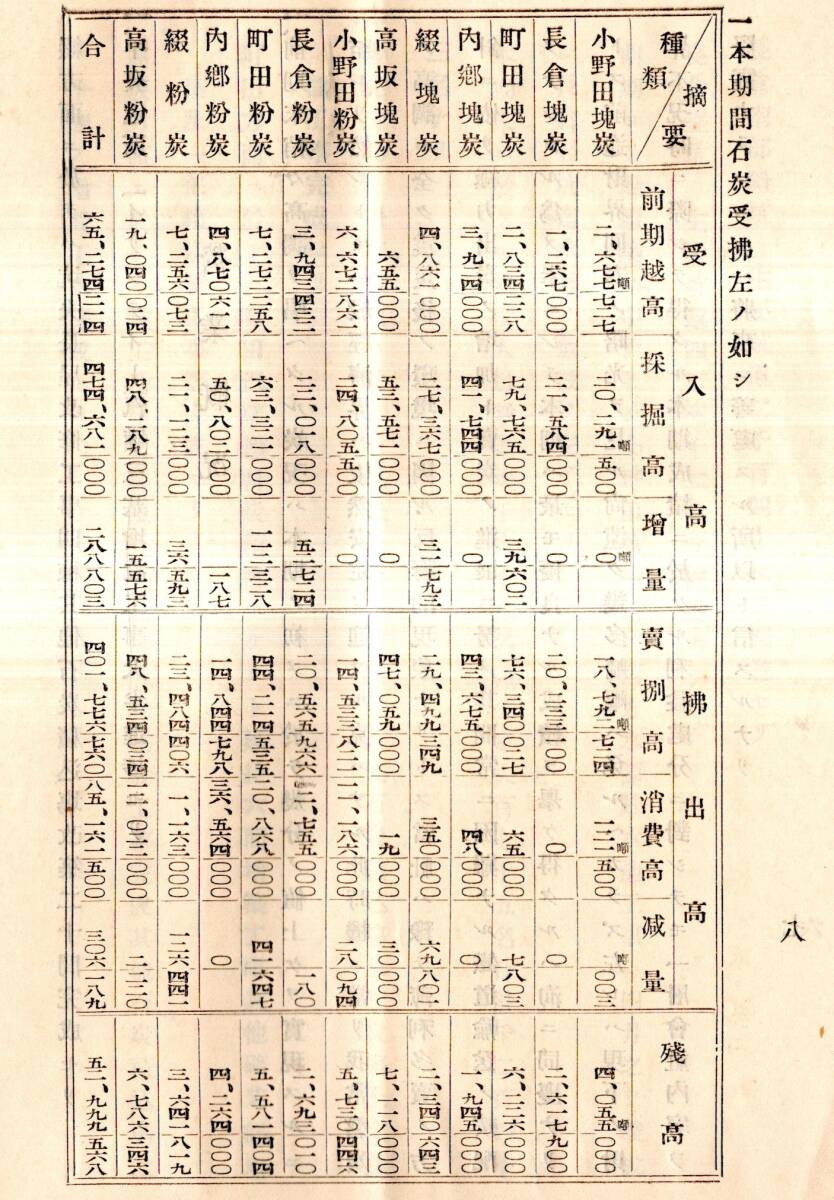 一本期間石炭受拂左ノ如シ
八
摘要 種類 受入高 拂出高 殘高
前期越高 採掘高 增量 賣捌高 消費高 減量
小野田塊炭 二、六七七噸七二七 二〇、二九一噸五〇〇 噸〇 一八、七九二噸七二四 一二一噸五〇〇 噸〇〇三 四、〇五五噸〇〇〇
長倉塊炭 一、二六七〇〇〇 二一、五八四〇〇〇 〇 二〇、二三三一〇〇 〇 〇 二、六一七九〇〇
町田塊炭 二、八三四二二八 七九、七六五〇〇〇 三九六〇二 七六、三四〇〇二七 六五〇〇〇 七八〇三 六、二二六〇〇〇
內鄕塊炭 三、九二四〇〇〇 四一、七四四〇〇〇 〇 四三、六七五〇〇〇 四八〇〇〇 〇 一、九四五〇〇〇
綴塊炭 四、八六一〇〇〇 二七、三六七〇〇〇 三一七九三 二九、四九九三四九 三五〇〇〇〇 六九八〇一 二、三四〇六四三
高坂塊炭 六五五〇〇〇 五三、五七一〇〇〇 〇 四七、〇五九〇〇〇 一九〇〇〇 三〇〇〇〇 七、一一八〇〇〇
小野田粉炭 六、六七二八六一 二四、八〇五五〇〇 〇 一四、五三三八二一 一一、一八六〇〇〇 二八〇九四 五、七三〇四四六
長倉粉炭 三、九四三四三二 二二、〇一八〇〇〇 五二七二四 二〇、五六五九六六 二、七五五〇〇〇 一八〇 二、六九三〇一〇
町田粉炭 七、二七二二五八 六三、三二一〇〇〇 一一二三二八 四四、二一四五三五 二〇、八六八〇〇〇 四一六四七 五、五八一四〇四
內鄕粉炭 四、八七〇六一一 五〇、八〇二〇〇〇 一八七 一四、八四四七九八 三六、五六四〇〇〇 〇 四、二六四〇〇〇
綴粉炭 七、二五六〇七三 二一、一二三〇〇〇 三六五九三 二三、四八四四〇六 一、一六三〇〇〇 一二六四四一 三、六四一八一九
高坂粉炭 一九、〇四〇〇二四 四八、二八九〇〇〇 一五五七六 四八、五三四〇三四 一二、〇二二〇〇〇 二二二〇 六、七八六三四六
合計 六五、二七四二一四 四七四、六八一〇〇〇 二八八八〇三 四〇一、七七六七六〇 八五、一六一五〇〇 三〇六一八九 五二、九九九五六八